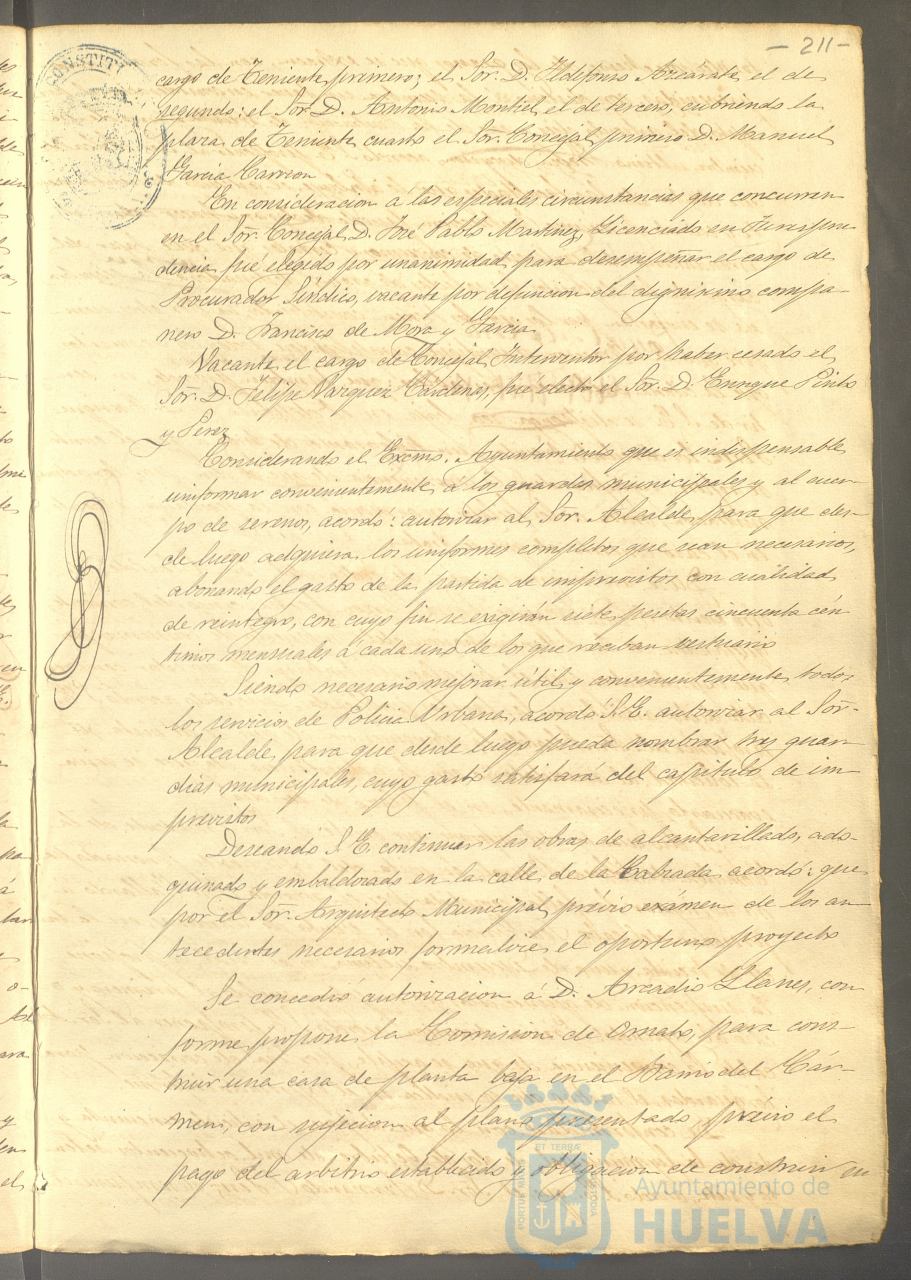 - 211 -
CONSTITU
cargo de Teniente primero; el Sor. D. Ildefonso Azcárate, el de
segundo: el Sor. D. Antonio Montiel el de tercero, cubriendo la
plaza de Teniente cuarto el Sor. Concejal primero D. Manuel
Garcia Carrion
En consideracion á las especiales circunstancias que concurren
en el Sor. Concejal D. José Pablo Martinez, Licenciado en Jurispru
dencia fué elegido por unanimidad para desempeñar el cargo de
Procurador Síndico, vacante por defuncion del dignisimo compa-
ñero D. Francisco de Mora y Garcia
Vacante el cargo de Concejal Interventor por haber cesado el
Sor. D. Felipe Vazquez Cárdenas, fué electo el Sor. D. Enrique Pinto
y Perez
Considerando el Excmo. Ayuntamiento que es indispensable
uniformar convenientemente á los guardias municipales y al cuer-
po de serenos, acordó: autorizar al Sor. Alcalde, para que des-
de luego adquiera los uniformes completos que sean necesarios,
abonando el gasto de la partida de imprevistos con cualidad
de reintegro, con cuyo fin se exigirán siete pesetas cincuenta cén
timos mensuales á cada uno de los que reciban vestuario
Siendo necesario mejorar útil y convenientemente todos
los servicios de Policia Urbana, acordó S.E. autorizar al Sor.
Alcalde para que desde luego pueda nombrar tres guar-
dias municipales, cuyo gasto satisfará del capitulo de im-
previstos
Deseando S.E. continuar las obras de alcantarillado, ado-
quinado y embaldosado en la calle de la Calzada acordó: que
por el Sor. Arquitecto Municipal, prévio exámen de los an-
tecedentes necesarios formalice el oportuno proyecto
Se concedió autorizacion á D. Arcadio Llanes, con
forme propone la Comision de Ornato, para cons-
truir una casa de planta baja en el Barrio del Cár-
men, con sujecion al plano presentado, prévio el
pago del arbitrio establecido y obligacion de construir en
PORTUS MARIS ET TERRÆ CUSTODIA
Ayuntamiento de
HUELVA